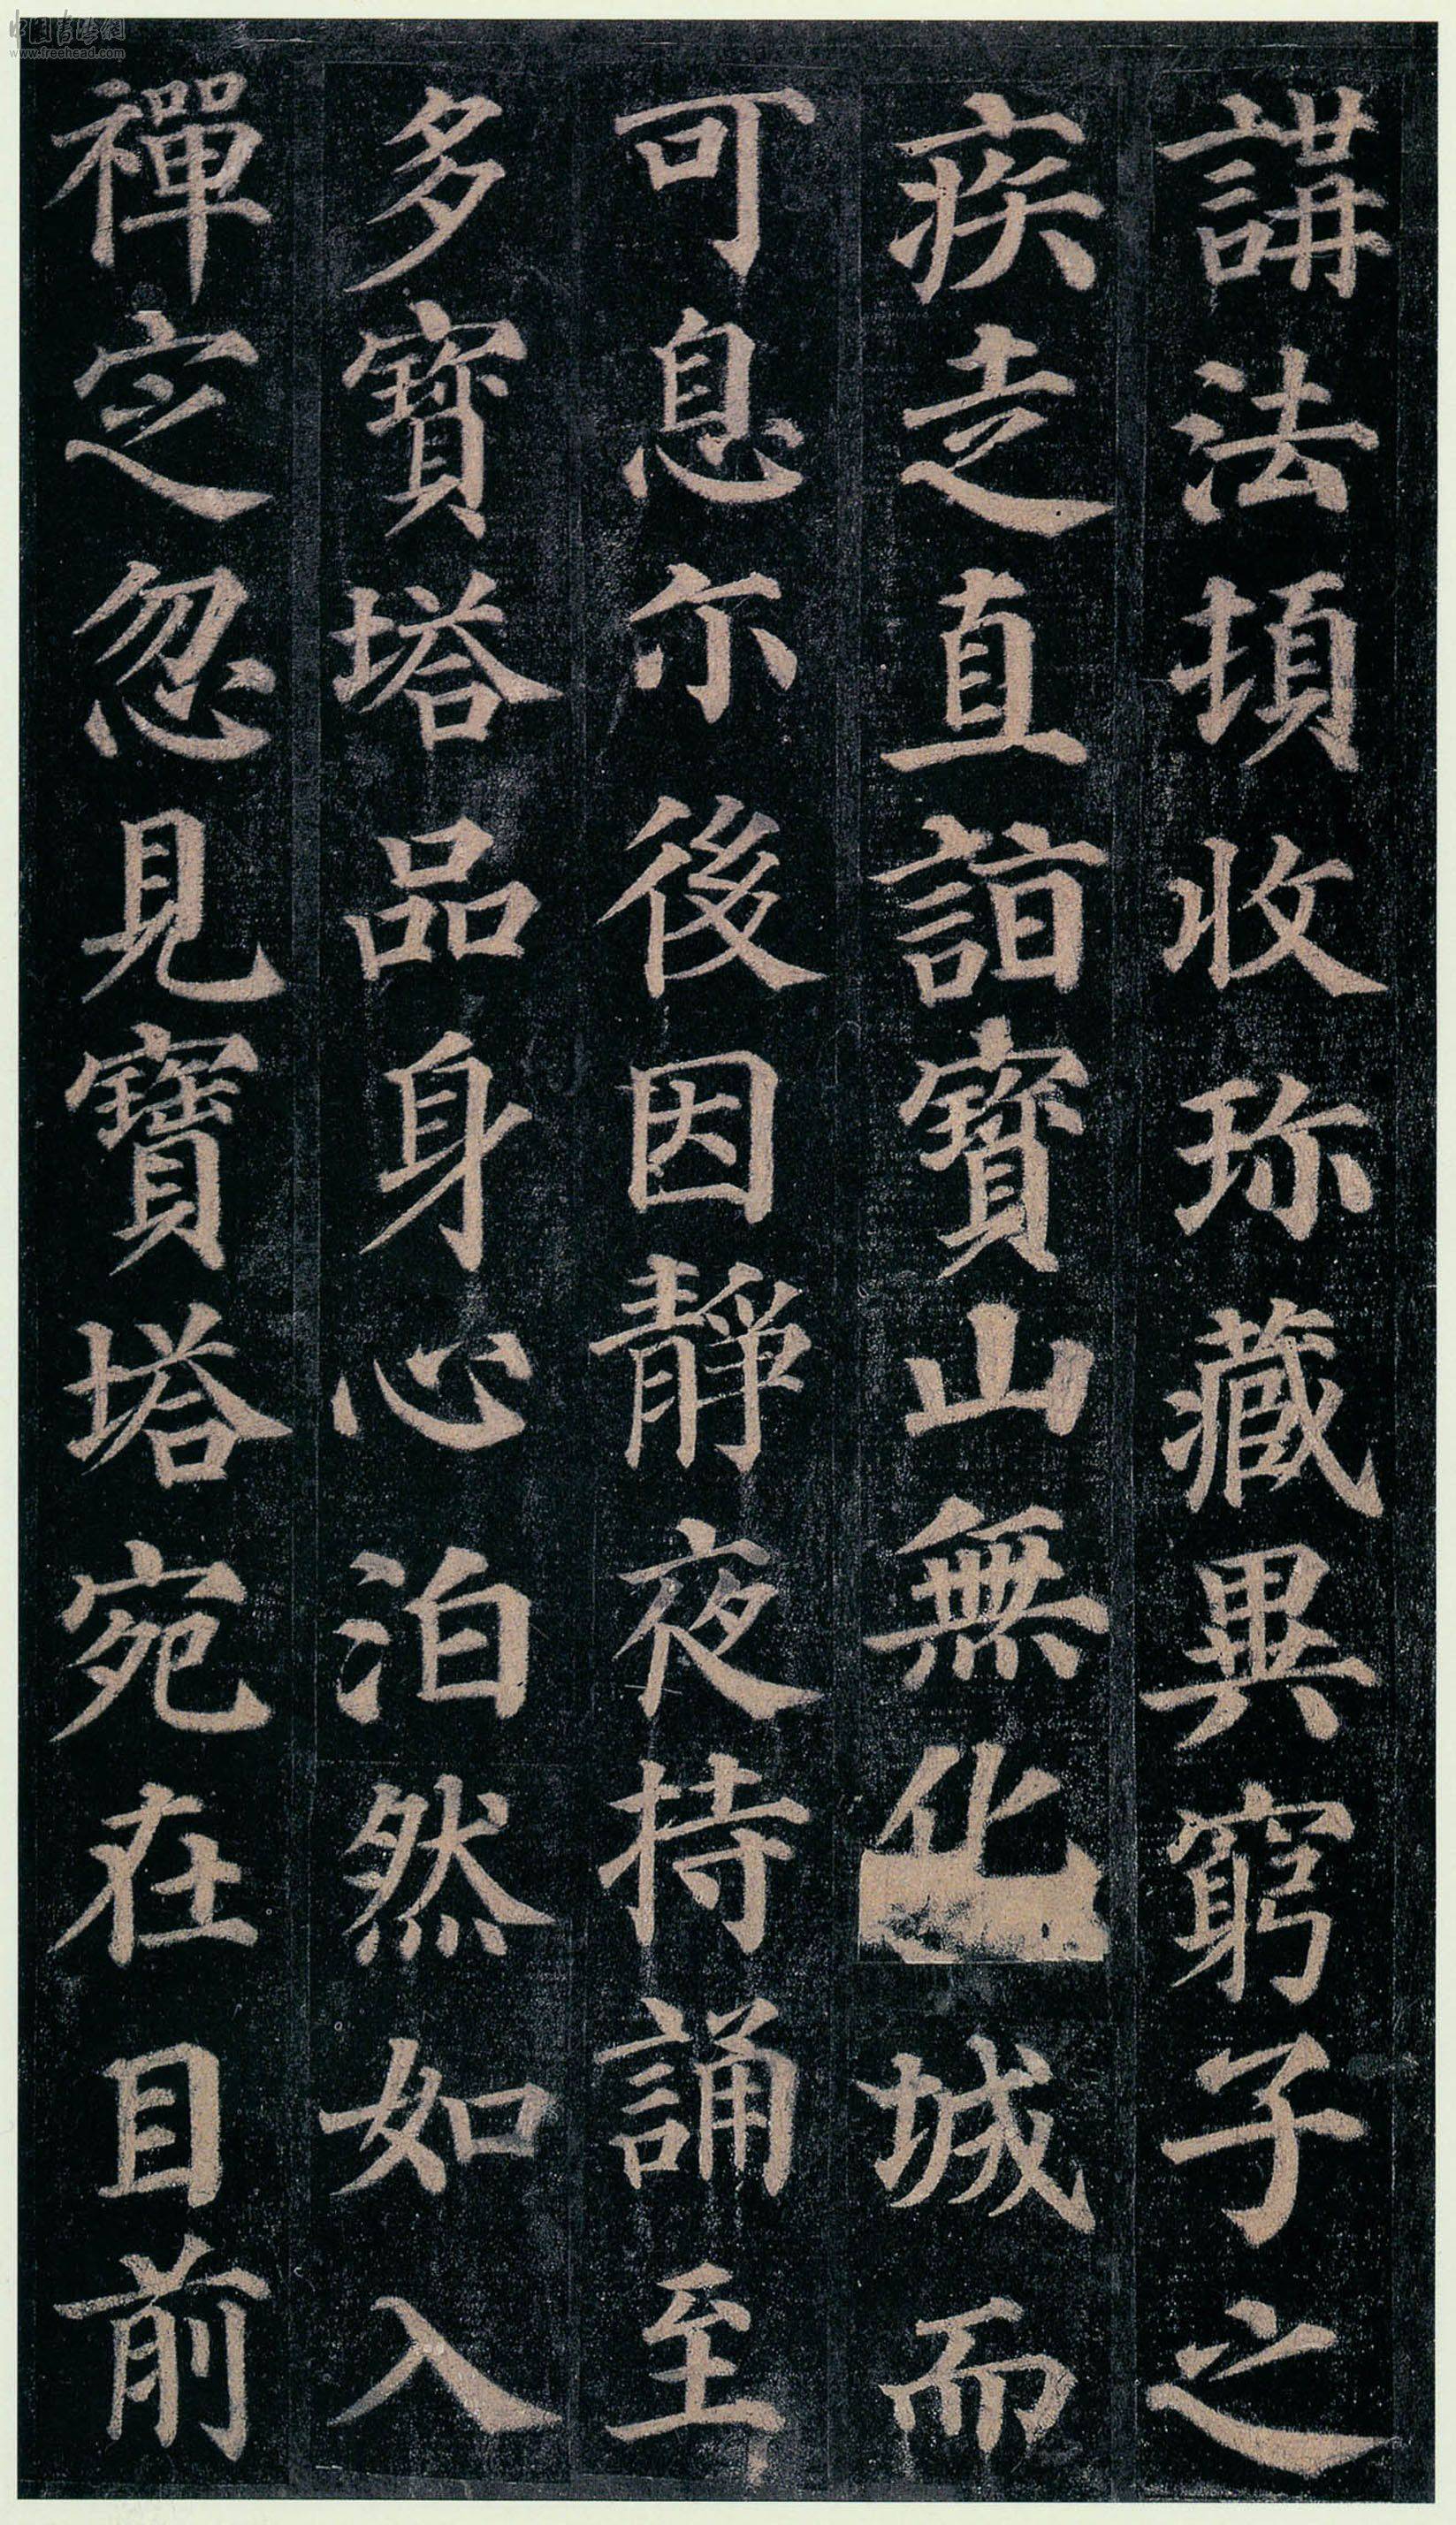 講法頓收珎藏異窮子之
疾走直詣寳山無化城而
可息尒後因靜夜持誦至
多寳塔品身心泊然如入
禪定忽見寶塔宛在目前
中国书法网
www.freehead.com